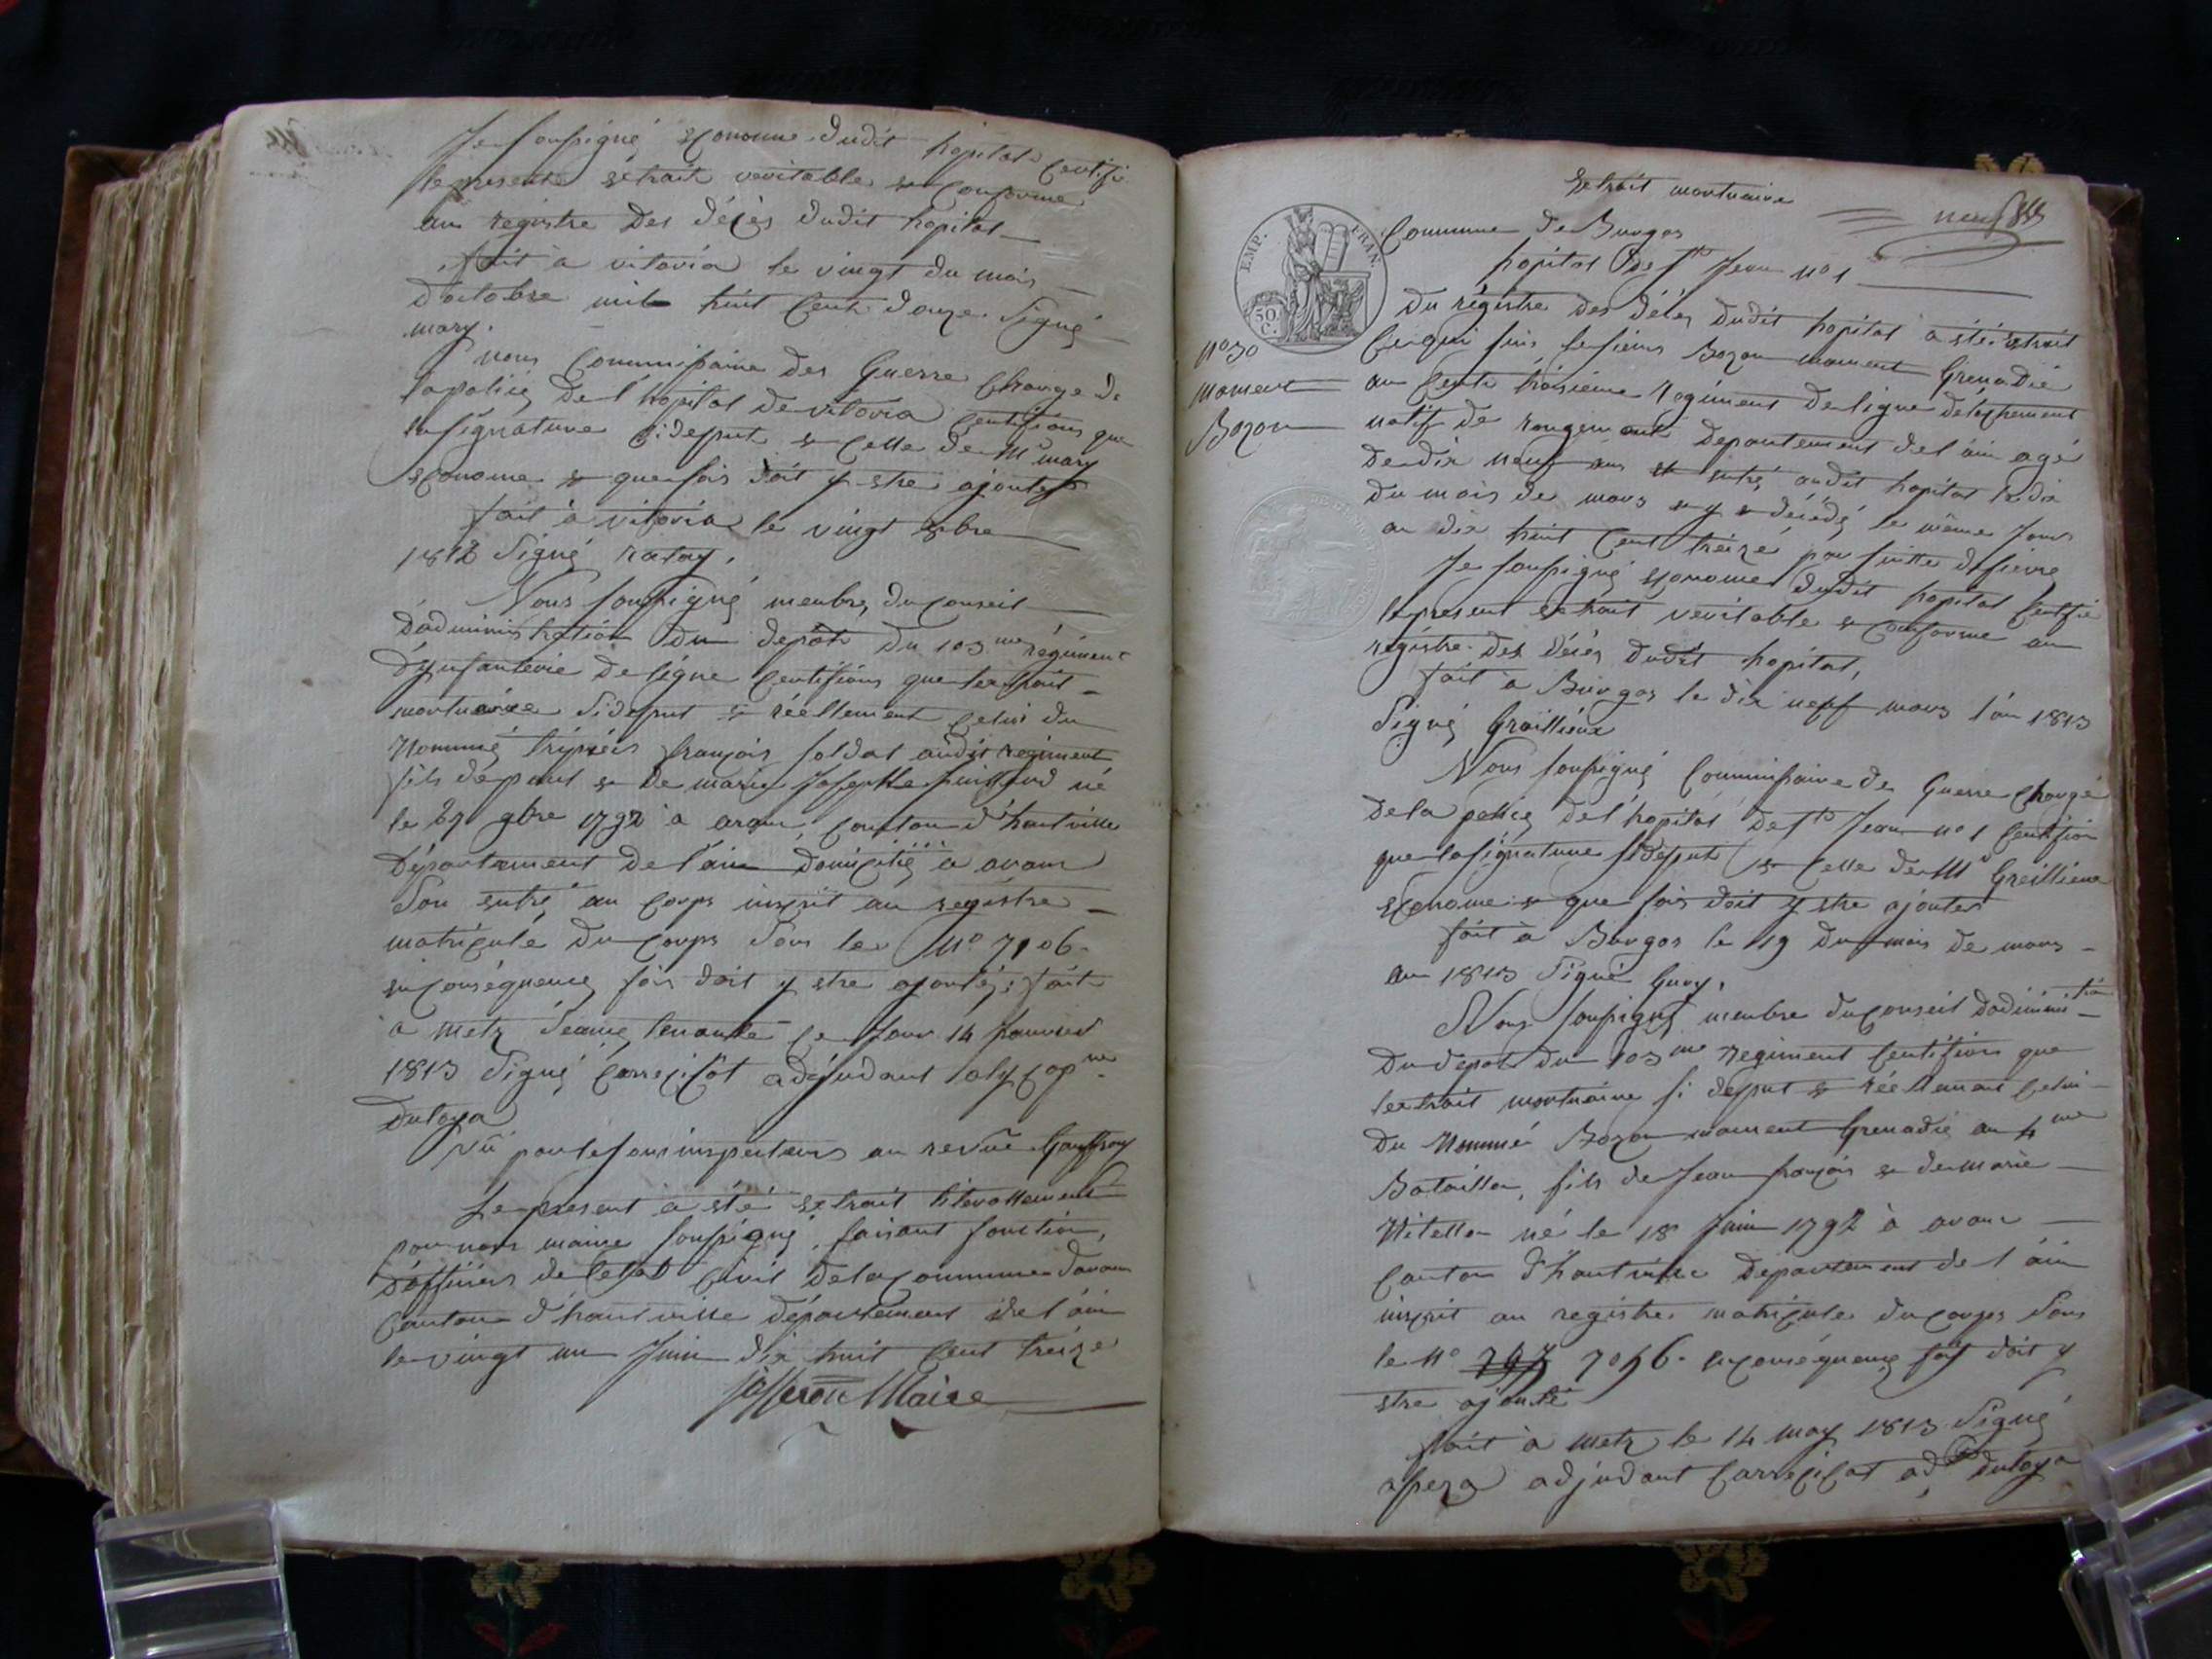 Je soussigné Econome dudit hopital Certifie
le present extrait veritable & conforme
au registre des décès dudit hopital
fait à vitoria le vingt du mois
d'octobre mil huit cent douze. Signé
mary.
Nous Commissaire des Guerre Chargé de
la police de l'hopital de vitoria Certifions que
la signature si dessut & celle de Mr mary
Econome & que fois doit y etre ajouté
fait à vitoria le vingt 8bre
1812 Signé ratoy.
Nous soussigné membre du conseil
d'administration du depôt du 103me régiment
d'ynfanterie de ligne Certifions que lextrait
mortuaire si dessut & réellement celui du
Nommé françois soldat audit regiment
fils de paul & de marie Josephte né
le 27 9bre 1792 à aranc, Canton d'hautville
Département de l'ain domicilié à aranc
Son entré au Corps inscrit au registre
matricule du Corps sous le No 7106.
en conséquence fois doit y etre ajouté, fait
à metz Séance tenante ce jour 14 Janvier
1813 Signé Carrecicot adéjudant
Dutoya
Vû par le sous inspecteurs au revüe
Le present a été extrait literallement
par nous maire soussigné, faisant fonction,
d'officiers de l'etat Civil de la Commune daranc
Canton d'hautville département de l'ain
le vingt un Juin dix huit Cent treize
Maire
Extrait mortuaire
Commune de Burgos
hopital de St Jean no 1
EMP. FRAN.
50 C.
du régistre des décès dudit hopital a été extrait
Ce qui suis le sieurs Bozon moment Grenadié
No 30
moment
Bozon
au Cent troisième Regiment de ligne détachement
natif de rougemont departement de l'ain agé
de dix neuf ans entré audit hopital le dix
du mois de mars & y & décédé le même Jour
an dix huit Cent treize par suitte de fievre
Je soussigné Econome dudit hopital Certifie
le present extrait veritable & conforme au
régistre des décès dudit hopital,
fait à Burgos le dix neff mars l'an 1813
Signé
Nous soussigné Commissaire de Guerre Chargé
de la police de l'hopital de St Jean no 1 Certifion
que la signature si dessut & celle de Mr
Econome & que fois doit y etre ajouter
fait à Burgos le 19 du mois de mars
an 1813 Signé
Nous soussigné membre du conseil dadministion
du depot du 103me regiment Certifions que
lextrait mortuaire si dessut & réellement celui
du Nommé Bozon moment Grenadié au 4me
Bataillon, fils de Jean françois & de marie
né le 18 Juin 1792 à aranc
Canton d'hautville departement de l'ain
inscrit au registre matricule du Corps sous
le No 7056. en conséquence fois doit y
etre ajouté
fait à metz le 14 may 1813 Signé
adjudant Carrecicot adt Dutoya